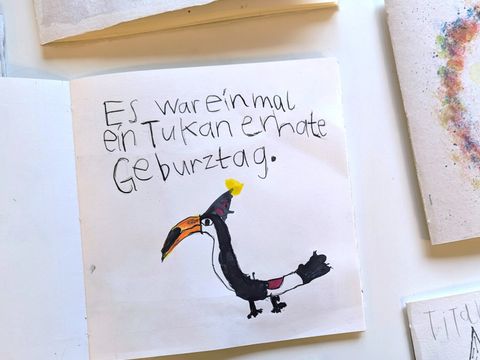 Es war einmal
ein Tukan er hate
Geburztag.
TiTa